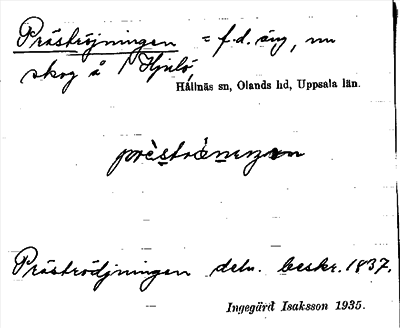 Präströjningen = f.d. äng, nu
skog å
Hållnäs sn, Olands hd, Uppsala län.
Präströdjningen deln. beskr. 1837.
Ingegärd Isaksson 1935.